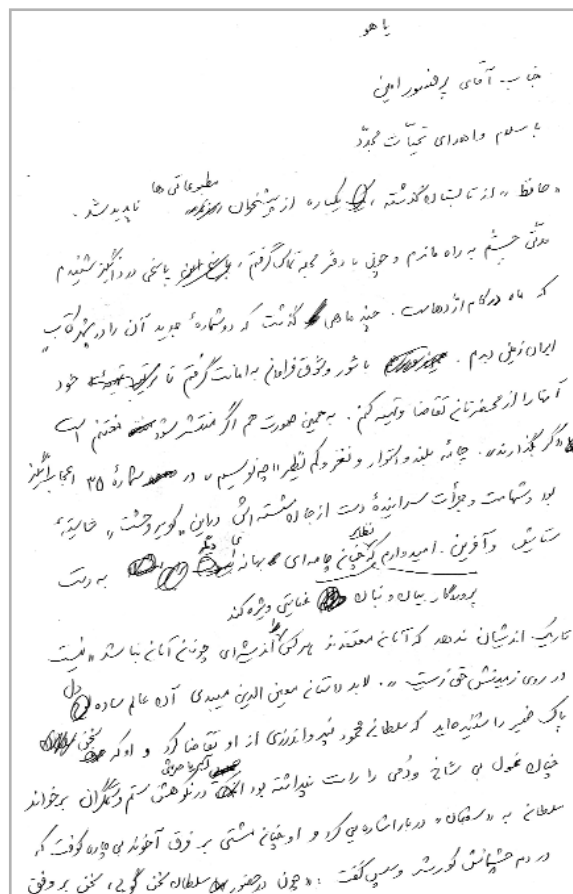 یا هو
جناب آقای پرفسور امین
با سلام و اهدای تحیّات مجدّد
«حافظ» از تابستان گذشته، یکباره از پیشخوان مطبوعاتی ها ناپدید شد.
مدّتی چشم به راه ماندم و چون با دفتر مجله تماس گرفتم، پاسخی دردانگیز شنیدم
که ماه در کام اژدهاست. چند ماهی گذشت که دو شمارهٔ جدید آن را در «شهر کتاب»
ایران زمین دیدم. با شور و شوق فراوان به امانت گرفتم تا خود
آنها را از محضرتان تقاضا و تهیه کنم. به همین صورت هم اگر منتشر شود مغتنم است
«اگر بگذارند». چامهٔ بلند و استوار و نغز و کم نظیر «چه نویسیم» در شمارهٔ ۳۵ اعجاب انگیز
بود و شهامت و جرأت سرایندهٔ دست از جان شسته اش در این «کویر وحشت» شایستهٔ
ستایش و آفرین. امیدوارم که نظایر چنان چامه ای بهانه ای دیگر به دست
پروردگار بیان و بنان عنایتی ویژه کند
تاریک اندیشان ندهد که آنان معتقدند هر کس را اندیشه ای چونان آنان نباشد «نیست
در روی زمینش حق زیست». لابد داستان معین الدین میبدی آن عالم ساده دل
پاک ضمیر را شنیده اید که سلطان محمود پند و اندرزی از او تقاضا کرد و او که سخن
چنان غول بی شاخ و دمی را راست پنداشته بود در نکوهش ستم و ستمگران برخواند
سلطان به «سرهنگان» دربار اشاره یی کرد و او چنان مشتی بر فرق آخوند بی چاره کوفت که
در دم چشمانش کور شد و سپس گفت: «چون در حضور سلطان سخن گویی، سخن بر وفق